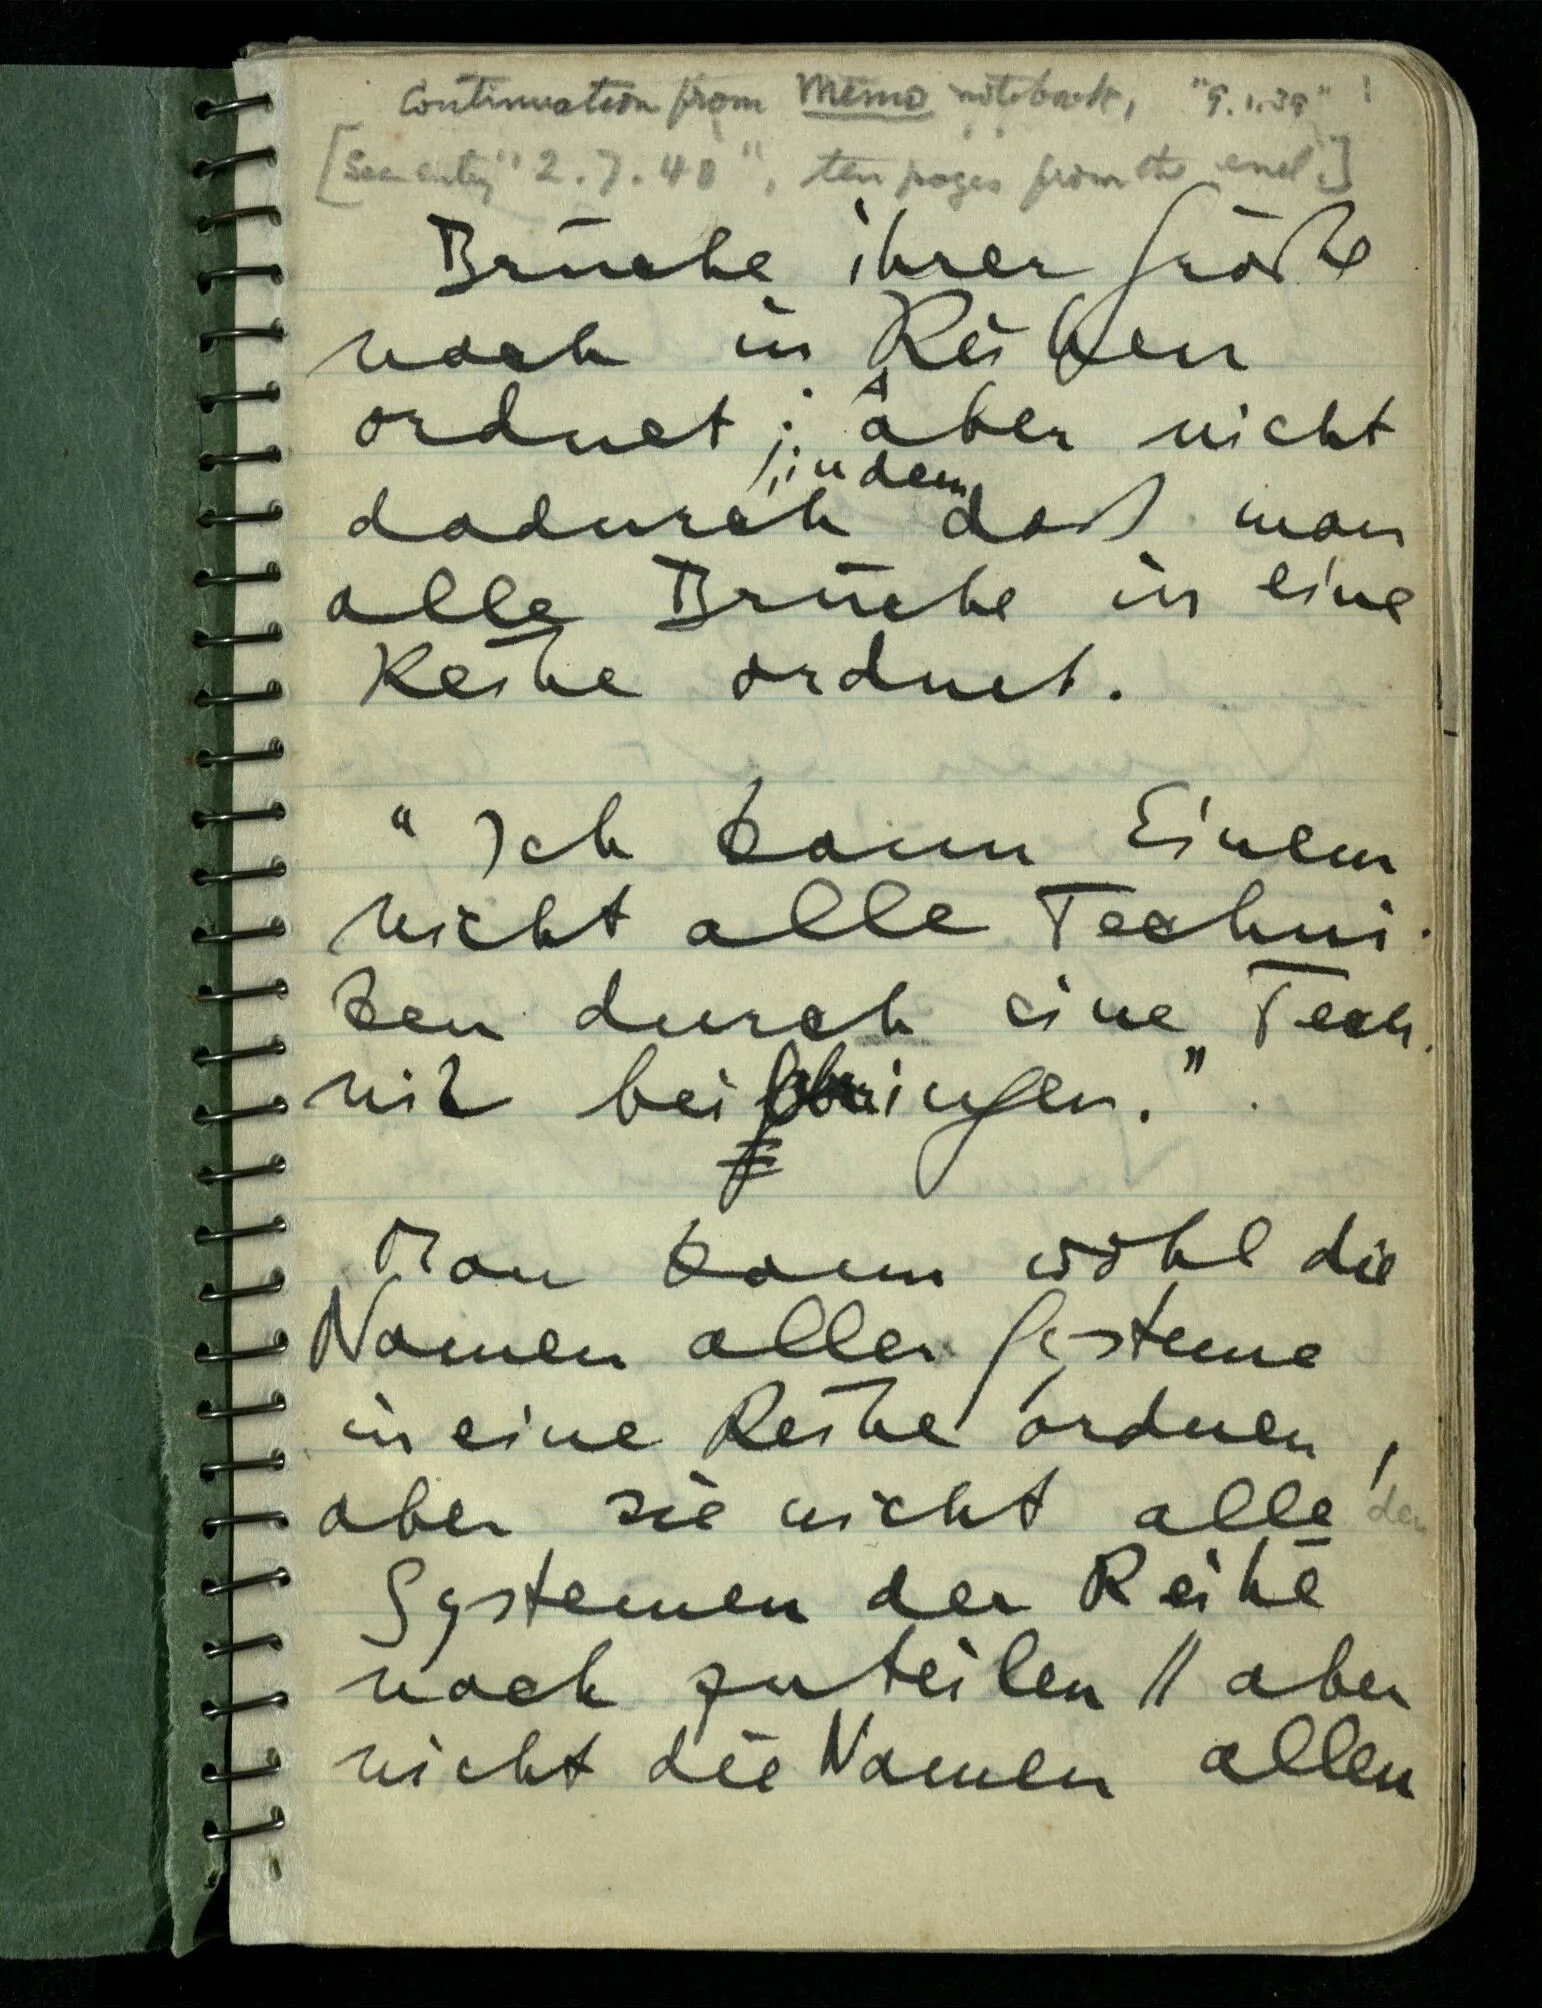 Continuation from Memo notebook, "9.1.39"
[See entry "2.7.40", ten pages from the end.]
Brüche ihrer Größe
nach in Reihen
ordnet; aber nicht
indem
dadurch daß man
alle Brüche in eine
Reihe ordnet.
"Ich kann Einem
nicht alle Techni-
ken durch eine Tech-
nik beibringen."
Man kann wohl die
Namen aller Systeme
in eine Reihe ordnen,
aber sie nicht alle den
Systemen der Reihe
nach zuteilen // aber
nicht die Namen allen